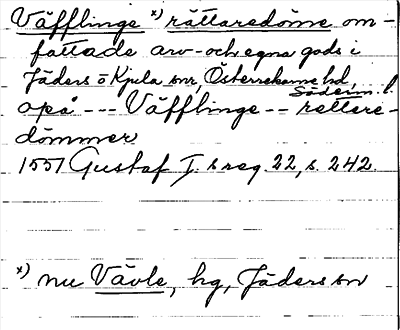 Väfflinge x) rättaredöme om-
fattade arv- och egna gods i
Jäders o Kjula snr, Österrekarne hd,
Söderm. l.
opå --- Väfflinge -- rettere-
dömmer
1557 Gustaf I. s reg. 22, s. 242.
x) nu Vävle, hg, Jäders sn